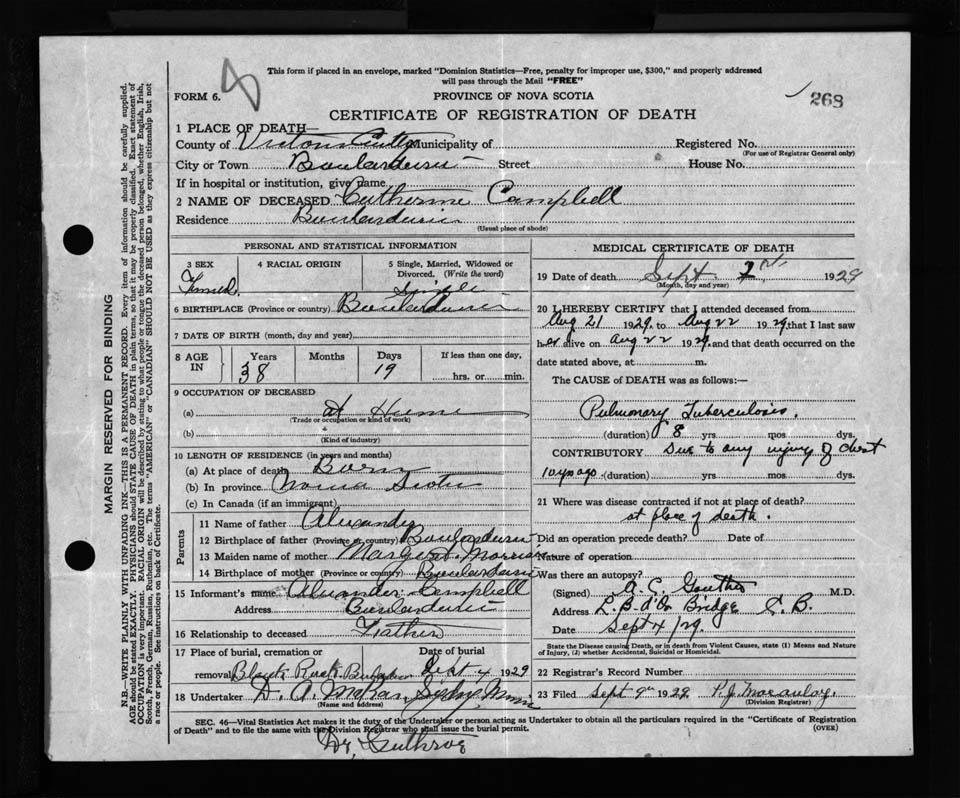 This form if placed in an envelope, marked "Dominion Statistics—Free, penalty for improper use, $300," and properly addressed
will pass through the Mail "FREE"
FORM 6.
PROVINCE OF NOVA SCOTIA
268
CERTIFICATE OF REGISTRATION OF DEATH
1 PLACE OF DEATH—
County of Victoria Municipality of Registered No.
(For use of Registrar General only)
City or Town Boularderie Street House No.
If in hospital or institution, give name
2 NAME OF DECEASED Catherine Campbell
Residence Boularderie
(Usual place of abode)
PERSONAL AND STATISTICAL INFORMATION
3 SEX 4 RACIAL ORIGIN 5 Single, Married, Widowed or
Divorced. (Write the word)
Female Single
6 BIRTHPLACE (Province or country) Boularderie
7 DATE OF BIRTH (month, day and year)
8 AGE IN Years Months Days If less than one day,
38 19 hrs. or min.
9 OCCUPATION OF DECEASED
(a) at Home
(Trade or occupation or kind of work)
(b)
(Kind of industry)
10 LENGTH OF RESIDENCE (in years and months)
(a) At place of death Born
(b) In province Nova Scotia
(c) In Canada (if an immigrant)
Parents
11 Name of father Alexander
12 Birthplace of father (Province or country) Boularderie
13 Maiden name of mother Margaret Morrison
14 Birthplace of mother (Province or country) Boularderie
15 Informant's name Alexander Campbell
Address Boularderie
16 Relationship to deceased Father
17 Place of burial, cremation or Date of burial
removal Black Rock Sept 4 1929
18 Undertaker D. A. Sydney Mines
(Name and address)
MEDICAL CERTIFICATE OF DEATH
19 Date of death Sept 2 1929
(Month, day and year)
20 I HEREBY CERTIFY that I attended deceased from
Aug 21 1929, to Aug 22 1929, that I last saw
her alive on Aug 22 1929, and that death occurred on the
date stated above, at m.
The CAUSE of DEATH was as follows:—
Pulmonary Tuberculosis.
(duration) 8 yrs mos dys.
CONTRIBUTORY Due to any injury of chest
10 yrs ago (duration) yrs mos dys.
21 Where was disease contracted if not at place of death?
at place of death.
Did an operation precede death? Date of
Nature of operation
Was there an autopsy?
(Signed) M.D.
Address Bridge C.B.
Date Sept 4/29.
State the Disease causing Death, or in death from Violent Causes, state (1) Means and Nature
of Injury, (2) whether Accidental, Suicidal or Homicidal.
22 Registrar's Record Number
23 Filed Sept 9th 1929 P.J. Macaulay
(Division Registrar)
SEC. 46—Vital Statistics Act makes it the duty of the Undertaker or person acting as Undertaker to obtain all the particulars required in the "Certificate of Registration
of Death" and to file the same with the Division Registrar who shall issue the burial permit.
(OVER)
Dr. Guthroe
MARGIN RESERVED FOR BINDING
N.B.—WRITE PLAINLY WITH UNFADING INK—THIS IS A PERMANENT RECORD. Every item of information should be carefully supplied.
AGE should be stated EXACTLY. PHYSICIANS should STATE CAUSE OF DEATH in plain terms, so that it may be properly classified. Exact statement of
OCCUPATION is very important. RACIAL ORIGIN will be described by stating to what people or tongue the deceased person belonged, whether English, Irish,
Scotch, French, German, Russian, Ruthenian, etc. The terms "AMERICAN" or "CANADIAN" SHOULD NOT BE USED as they express citizenship but not
a race or people. See instructions on back of Certificate.